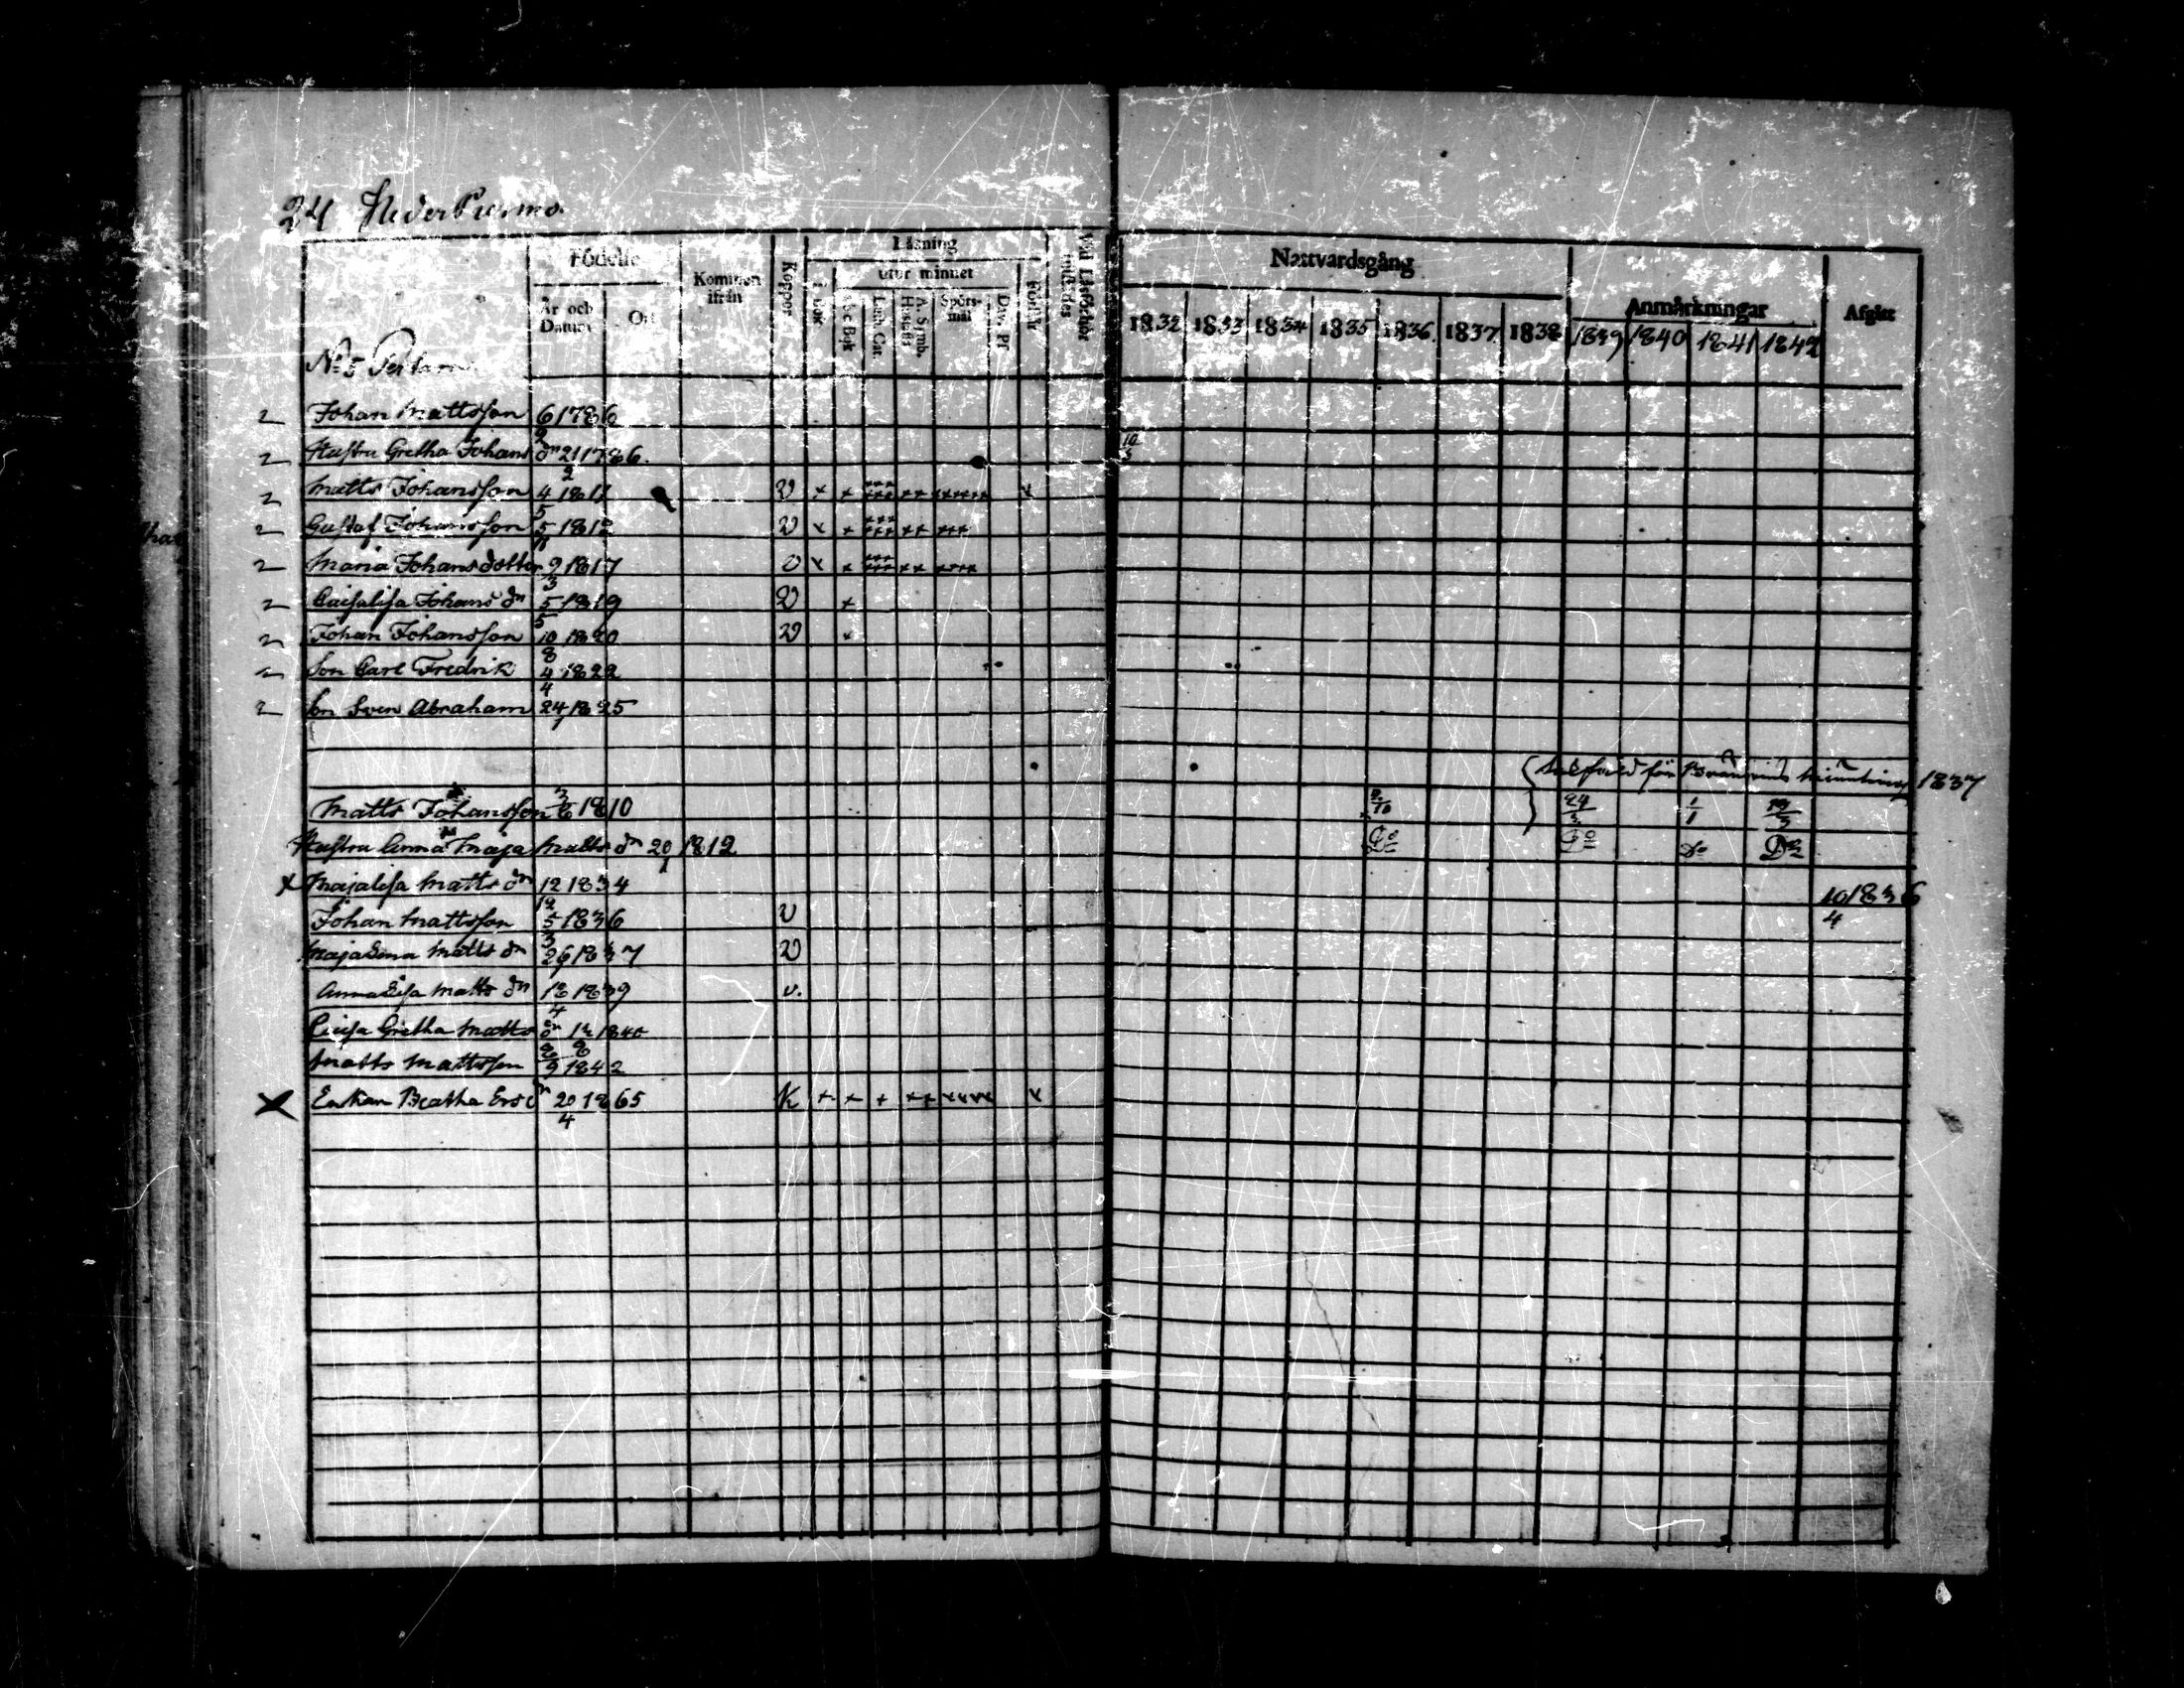 24 NederPurmo.
Födelse Kommen ifrån Koppor Läsning Nattvardsgång Anmärkningar Afgått
År och Datum Ort i bok utur minnet Förstår Vid Läsförhör
Abc Bok Luth. Cat. A. Symb. Hustafl. Spörs-mål Dav. Ps
1832 1833 1834 1835 1836. 1837 1838 1839 1840 1841 1842
No 5
2 Johan Mattsson 6/9 1786
2 Hustru Gretha Johans dr 21/2 1786. 10
2 Matts Johansson 4/5 1811 V x x xxx xxx xx xxxxx x
2 Gustaf Johansson 5 1812 V x x xxx xxx xx xxx
2 Maria Johansdotter 9/3 1817 v x x xxx xxx xx xxxx
2 Caisalisa Johans dr 5/5 1819 V x
2 Johan Johansson 10/8 1820 V x
2 Son Carl Fredrik 4/4 1822
2 Son Sven Abraham 24/1 1825
1837
Matts Johansson 1810 24 1/1
Hustru Anna Maja Matts dr 20/1 1812 Do Do Do Do
x Majalisa Matts dr 12/12 1834 10/4 1836
Johan Mattsson 5/3 1836 V
Majalena Matts dr 26 1837 V
Annalisa Matts dr 18/4 1839 v.
Caisa Gretha Matts dr 12/8 1840
Matts Mattsson 8/9 1842
x Enkan Beatha Ers dr 20/4 1865 K x x x xx xxxx x